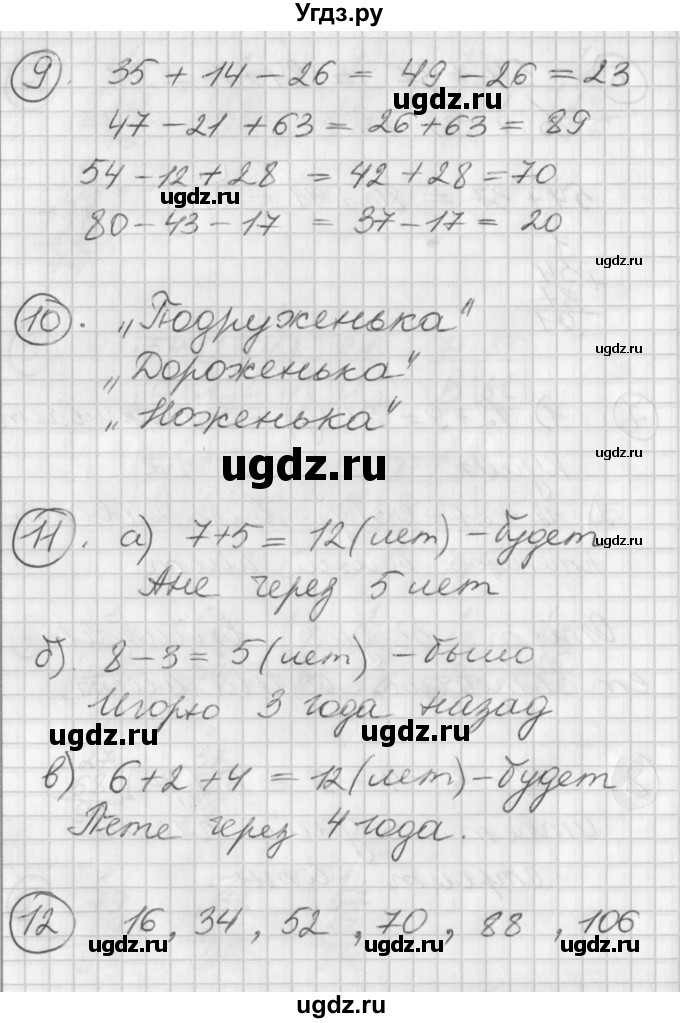 Угдз.ру
9. 35 + 14 - 26 = 49 - 26 = 23
ugdz.ru
47 - 21 + 63 = 26 + 63 = 89
54 - 12 + 28 = 42 + 28 = 70
ugdz.ru
80 - 43 - 17 = 37 - 17 = 20
ugdz.ru
10. „Подруженька“
ugdz.ru
„Дороженька“
„Ноженька“
ugdz.ru
ugdz.ru
11. а) 7+5 = 12 (лет) - будет
ugdz.ru
Ане через 5 лет
б) 8 - 3 = 5 (лет) - было
ugdz.ru
Игорю 3 года назад
ugdz.ru ugdz.ru
в) 6 + 2 + 4 = 12 (лет) - будет
Пете через 4 года.
12 16, 34, 52, 70, 88, 106
ugdz.ru ugdz.ru ugdz.ru
ugdz.ru